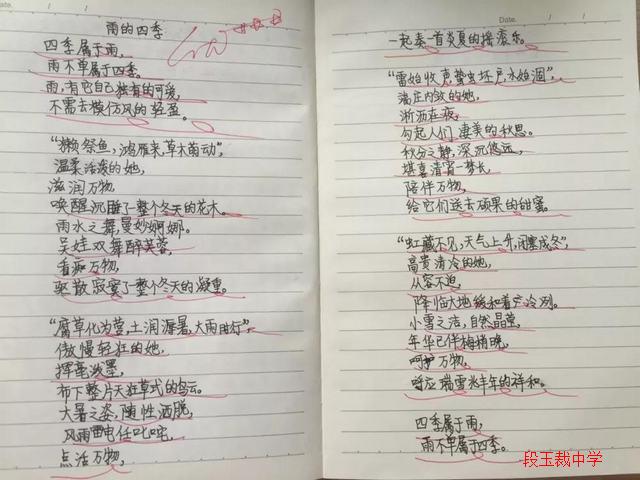 雨的四季
四季属于雨,
雨不单属于四季。
雨,有它自己独有的可爱,
不需去模仿风的轻盈。
“獭祭鱼,鸿雁来,草木萌动”,
温柔活泼的她,
滋润万物,
唤醒沉睡了整个冬天的花木。
雨水之舞,曼妙婀娜。
吴娃双舞醉芙蓉,
看痴万物,
驱散寂寞了整个冬天的凝重。
“腐草化为萤,土润溽暑,大雨时行”,
傲慢轻狂的她,
挥毫泼墨,
布下整片天狂草式的乌云。
大暑之姿,随性洒脱,
风雨雷电任叱咤,
点活万物,
Date.
一起奏一首炎夏的摇滚乐。
“雷始收声,蛰虫坯户,水始涸”,
端庄内敛的她,
淅沥在夜,
勾起人们凄美的秋思。
秋分之静,深沉悠远,
堪喜清宵一梦长
陪伴万物,
给它们送去硕果的甜蜜。
“虹藏不见,天气上升,闭塞成冬”,
高贵清冷的她,
从容不迫,
降临大地缓和着严冷冽。
小雪之洁,自然晶莹,
年华已伴梅梢晚,
呵护万物,
呼应瑞雪兆丰年的祥和。
四季属于雨,
雨不单属于四季。
段玉裁中学